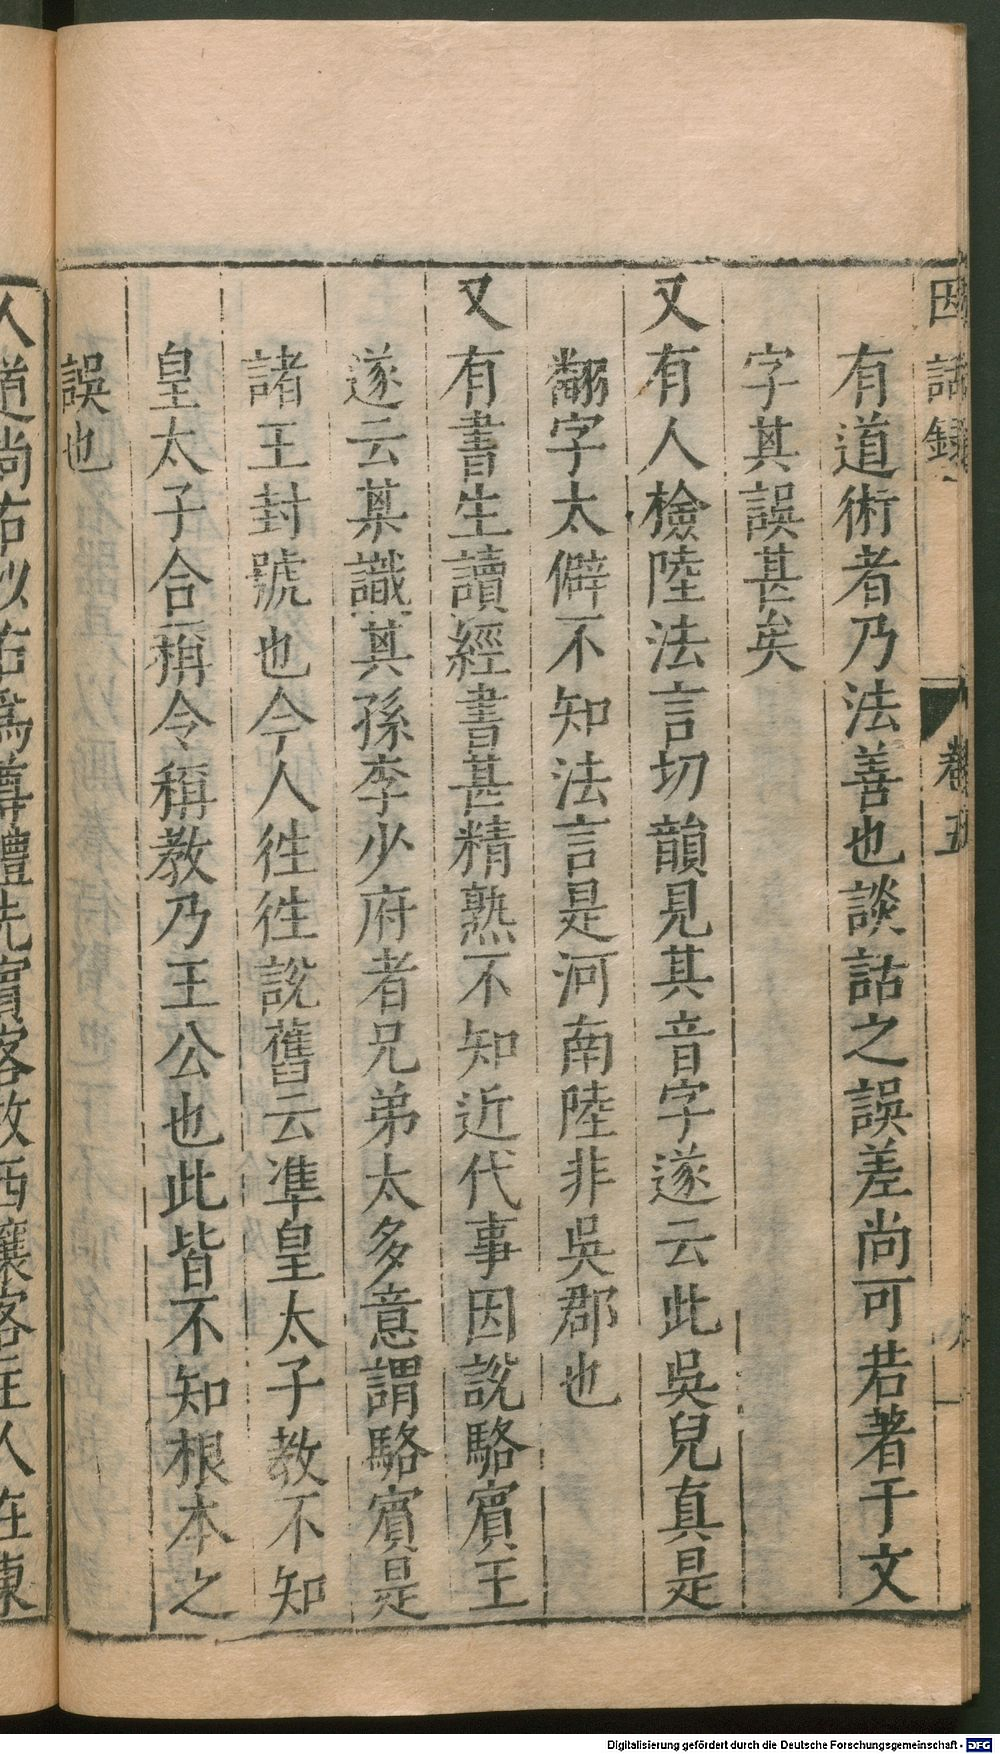 因話錄 卷五
有道術者乃法善也談話之誤差尚可若著于文
字其誤甚矣
又有人檢陸法言切韻見其音字遂云此吳兒真是
翻字太僻不知法言是河南陸非吳郡也
又有書生讀經書甚精熟不知近代事因說駱賓王
遂云某識其孫李少府者兄弟太多意謂駱賓是
諸王封號也今人徃徃說舊云準皇太子教不知
皇太子合稱令稱教乃王公也此皆不知根本之
誤也
人道尚右以右爲尊禮先賓客故西讓客主人在東
Digitalisierung gefördert durch die Deutsche Forschungsgemeinschaft - DFG